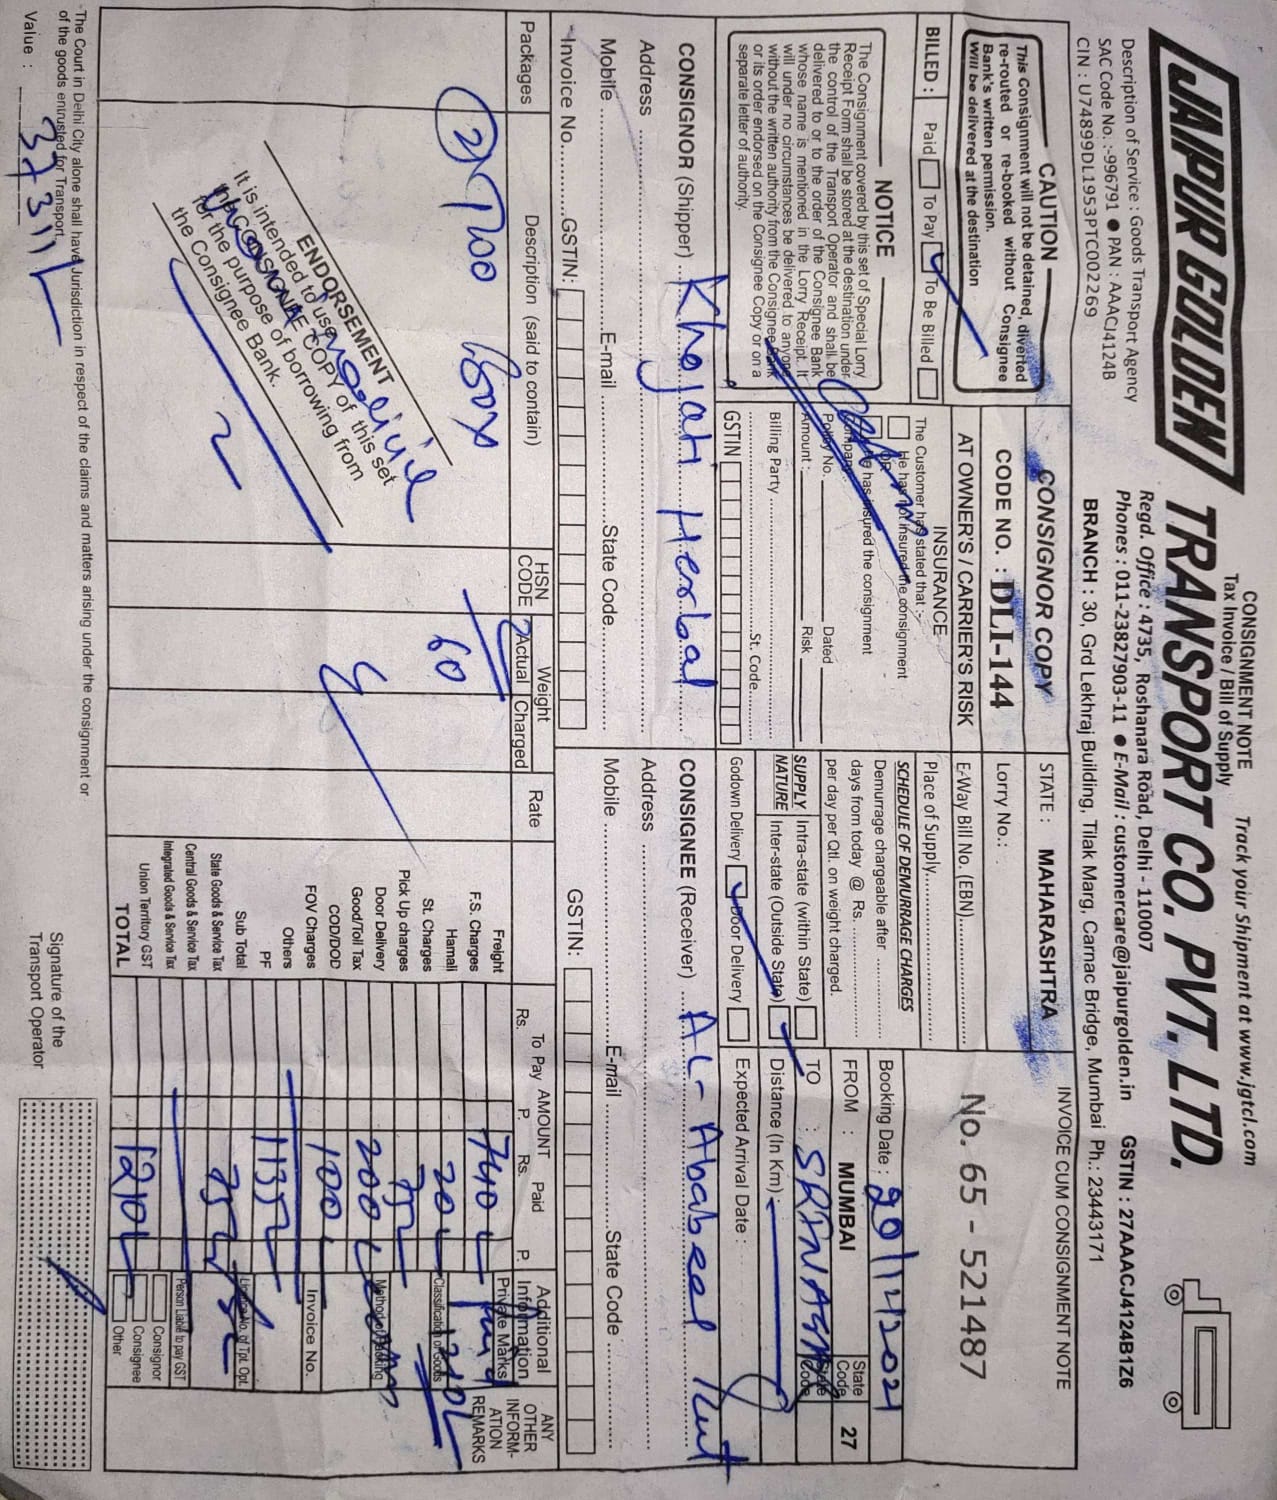 CONSIGNMENT NOTE
Tax Invoice / Bill of Supply
Track your Shipment at www.jgtcl.com
JAIPUR GOLDEN TRANSPORT CO. PVT. LTD.
Regd. Office : 4735, Roshanara Road, Delhi - 110007
Description of Service : Goods Transport Agency
SAC Code No. :-996791 ● PAN : AAACJ4124B
CIN : U74899DL1953PTC002269
Phones : 011-23827903-11 ● E-Mail : customercare@jaipurgolden.in
GSTIN : 27AAACJ4124B1Z6
BRANCH : 30, Grd Lekhraj Building, Tilak Marg, Carnac Bridge, Mumbai Ph.: 23443171
CAUTION
This Consignment will not be detained, diverted
re-routed or re-booked without Consignee
Bank's written permission.
Will be delivered at the destination
BILLED : Paid To Pay To Be Billed
NOTICE
The Consignment covered by this set of Special Lorry
Receipt Form shall be stored at the destination under
the control of the Transport Operator and shall be
delivered to or to the order of the Consignee Bank
whose name is mentioned in the Lorry Receipt. It
will under no circumstances be delivered to anyone
without the written authority from the Consignee Bank
or its order endorsed on the Consignee Copy or on a
separate letter of authority.
CONSIGNOR COPY
CODE NO. : DLI-144
AT OWNER'S / CARRIER'S RISK
INSURANCE
The Customer has stated that :-
He has not insured the consignment
OR
He has insured the consignment
Company
Policy No. Dated
Amount : Risk
Billing Party
St. Code
GSTIN
STATE : MAHARASHTRA
Lorry No.:
E-Way Bill No. (EBN)
Place of Supply
SCHEDULE OF DEMURRAGE CHARGES
Demurrage chargeable after
days from today @ Rs.
per day per Qtl. on weight charged.
SUPPLY NATURE
Intra-state (within State)
Inter-state (Outside State)
Godown Delivery Door Delivery
INVOICE CUM CONSIGNMENT NOTE
No. 65 - 521487
Booking Date : 20/12/2021
FROM : MUMBAI State Code 27
TO : SRINAGAR State Code
Distance (In Km)
Expected Arrival Date :
CONSIGNOR (Shipper) Khojati Herbal
Address
Mobile E-mail State Code
Invoice No. GSTIN:
CONSIGNEE (Receiver) AL-Ababeel
Address
Mobile E-mail State Code
GSTIN:
Packages
Description (said to contain)
HSN CODE
Weight
Actual Charged
Rate
AMOUNT
To Pay Paid
Rs. P. Rs. P.
Additional Information
ANY OTHER INFORMATION REMARKS
Box
60
ENDORSEMENT
It is intended to use
the CONSIGNEE COPY of this set
for the purpose of borrowing from
the Consignee Bank.
Freight 740
F.S. Charges
Hamali 20
St. Charges
Pick Up charges 75
Door Delivery
Good/Toll Tax 200
COD/DOD
FOV Charges 100
Others
PF
Sub Total 1135
State Goods & Service Tax 75
Central Goods & Service Tax
Integrated Goods & Service Tax
Union Territory GST
TOTAL 1210
Private Marks
Classification of Goods
Method of Packing
Invoice No.
Person Liable to pay GST
Consignor
Consignee
Other
The Court in Delhi City alone shall have Jurisdiction in respect of the claims and matters arising under the consignment or
of the goods entrusted for Transport.
Value : 37311
Signature of the
Transport Operator